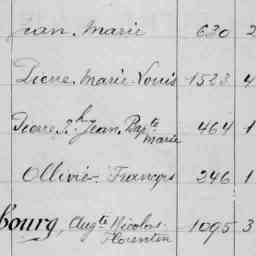 Jean Marie 630 2
Pierre Marie Louis 1523 4
Pierre Jean Bapte Marie 464 1
Ollivier François 246 1
bourg, Augte Nicolas Florentin 1095 3